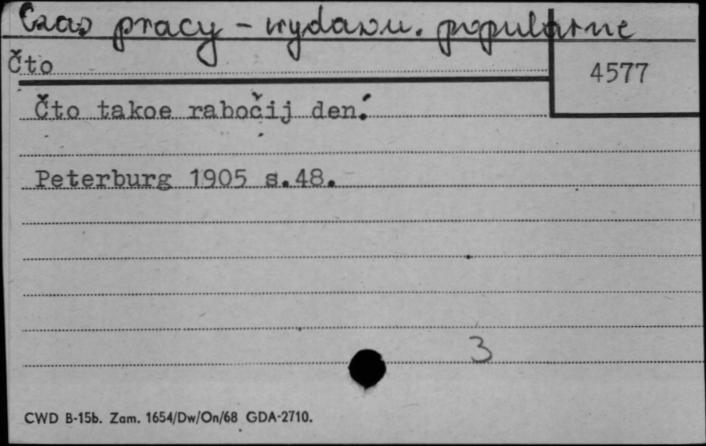 Czas pracy - wydawn. popularne
Čto
4577
Čto takoe rabočij den'.
Peterburg 1905 s.48.
3
CWD B-15b. Zam. 1654/Dw/On/68 GDA-2710.